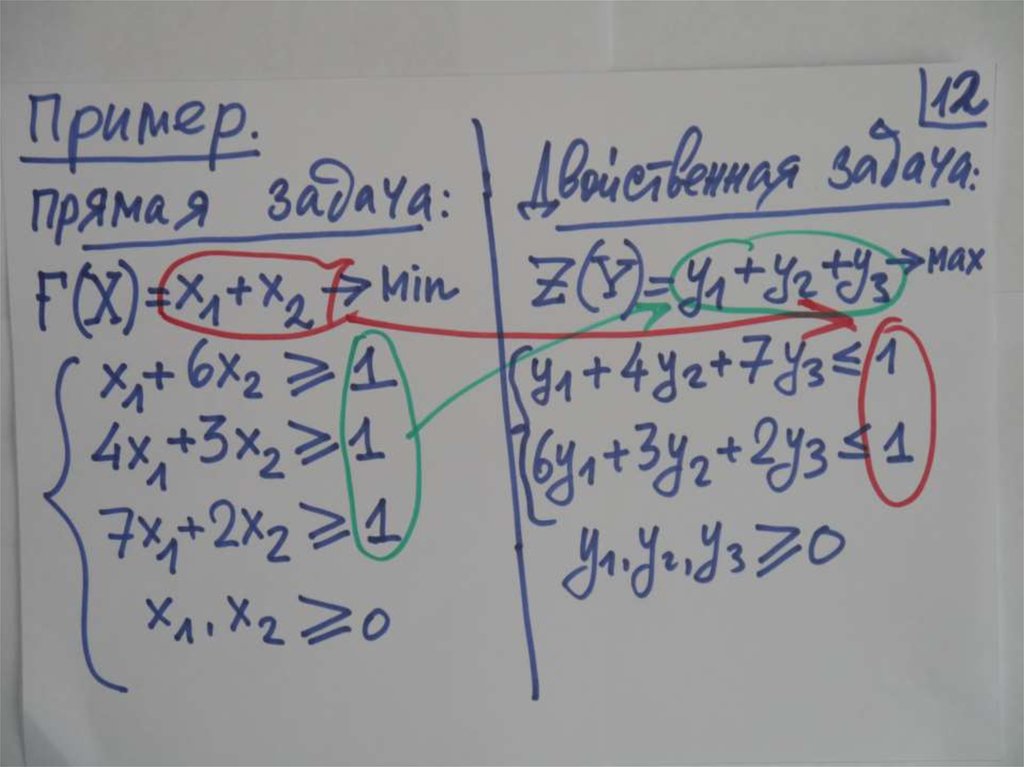 12
Пример.
Прямая задача:
F(X)=x₁+x₂→min
x₁+6x₂⩾1
4x₁+3x₂⩾1
7x₁+2x₂⩾1
x₁,x₂⩾0
Двойственная задача:
Z(Y)=y₁+y₂+y₃→max
y₁+4y₂+7y₃≤1
6y₁+3y₂+2y₃≤1
y₁,y₂,y₃⩾0